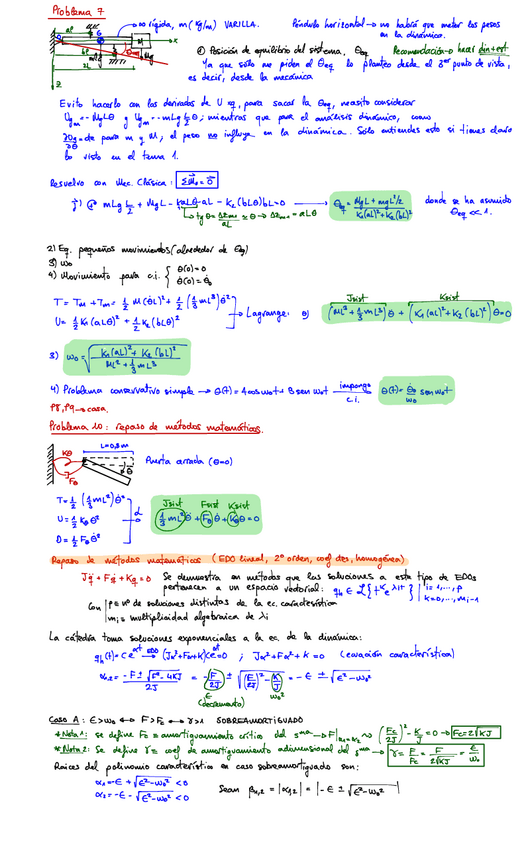 Problema 7
∞ rígida, m (kg/m) VARILLA.
Péndulo horizontal → no habrá que meter los pesos
en la dinámica.
① Posición de equilibrio del sistema, θeq
Recomendación → hacer din+est
Ya que sólo me piden el θeq lo planteo desde el 3er punto de vista,
es decir, desde la mecánica
Evito hacerlo con las derivadas de U xq, para sacar la θeq, necesito considerar
Ugm = -MgLθ y Ugm = -mLg L/2 θ; mientras que para el análisis dinámico, como
∂Ug/∂θ = cte para m y M, el peso no influye en la dinámica. Sólo entiendes esto si tienes claro
lo visto en el tema 1.
Resuelvo con Mec. Clásica: ΣM₀ = 0
mLg L/2 + MgL - k₁aLθ·aL - K₂(bLθ)bL = 0 → θeq = MgL + mgL²/2 / K₁(aL)² + K₂(bL)²
donde se ha asumido
θeq << 1.
2) Eq. pequeños movimientos (alrededor de θeq)
3) ω₀
4) Movimiento para c.i. { θ(0)=0
θ̇(0)=θ̇₀
T = TM + Tm = 1/2 M(θ̇L)² + 1/2 (1/3 mL³)θ̇²
U = 1/2 K₁(aLθ)² + 1/2 K₂(bLθ)²
Lagrange: θ) (ML² + 1/3 mL³)θ̈ + (K₁(aL)² + K₂(bL)²)θ = 0
Jsist
Ksist
3) ω₀ = √ K₁(aL)² + K₂(bL)² / ML² + 1/3 mL³
4) Problema conservativo simple → θ(t) = A cos ω₀t + B sen ω₀t impongo c.i. → θ(t) = θ̇₀/ω₀ sen ω₀t
P8, P9 → casa.
Problema 10: repaso de métodos matemáticos.
L=0,8m
Kθ
Fθ
θ
Puerta cerrada (θ=0)
T = 1/2 (1/3 mL²)θ̇²
U = 1/2 Kθ θ²
D = 1/2 Fθ θ̇²
Jsist Fsist Ksist
1/3 mL²θ̈ + Fθθ̇ + Kθθ = 0
Repaso de métodos matemáticos (EDO lineal, 2º orden, coef ctes, homogénea)
Jq̈ + Fq̇ + Kq = 0
Se demuestra en métodos que las soluciones a este tipo de EDOs
pertenecen a un espacio vectorial: qh ∈ L{t^k e^λit} | i=1,...,p
k=0,...,mi-1
Con | p ≡ nº de soluciones distintas de la ec. característica
mi ≡ multiplicidad algebraica de λi
La cátedra toma soluciones exponenciales a la ec. de la dinámica:
qh(t) = Ce^αt EDO→ (Jα²+Fα+K)Ce^αt = 0 ; Jα²+Fα+K = 0 (ecuación característica)
α₁,₂ = -F ± √F²-4KJ / 2J = -F/2J ± √(F/2J)² - K/J = -ε ± √ε²-ω₀²
ε
(decremento)
ω₀²
Caso A: ε>ω₀ ↔ F>Fc ↔ γ>1 SOBREAMORTIGUADO
*Nota 1: se define Fc ≡ amortiguamiento crítico del sma → F|α₁=α₂ → (Fc/2J)² - K/J = 0 → Fc = 2√KJ
*Nota 2: Se define γ ≡ coef de amortiguamiento adimensional del sma → γ = F/Fc = F/2√KJ = ε/ω₀
Raíces del polinomio característico en caso sobreamortiguado son:
α₁ = -ε + √ε²-ω₀² < 0
α₂ = -ε - √ε²-ω₀² < 0
Sean β₁,₂ = |α₁,₂| = |-ε ± √ε²-ω₀²|